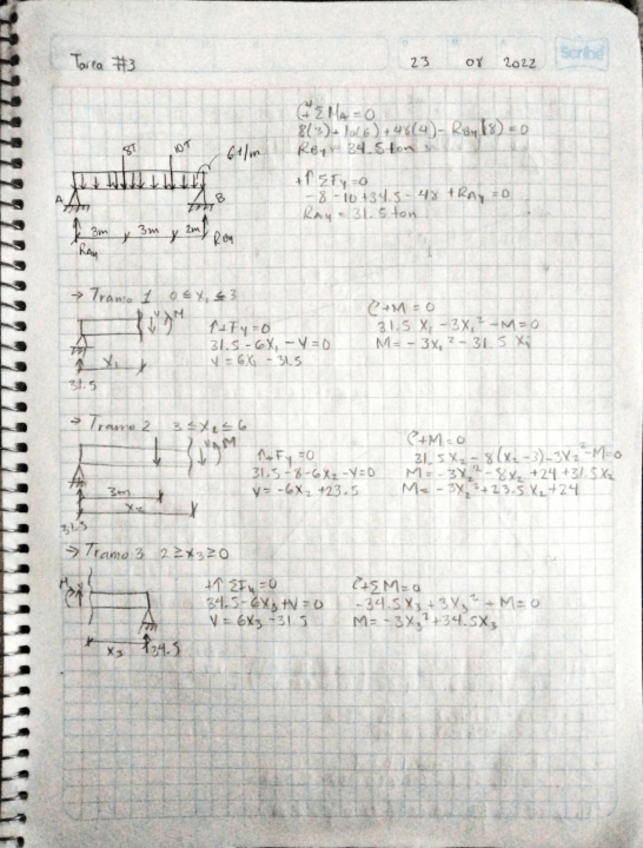 Scribe
Tarea #3
23 08 2022
8T 10T 6T/m
A B
3m 3m 2m
RAy RBy
(+ΣMA=0
8(3)+10(6)+48(4)-RBy(8)=0
RBy=34.5 ton
+↑ΣFy=0
-8-10+34.5-48+RAy=0
RAy=31.5 ton
→ Tramo 1 0≤X₁≤3
V M
X₁
31.5
↑+Fy=0
31.5-6X₁-V=0
V=6X₁-31.5
(+M=0
31.5X₁-3X₁²-M=0
M=-3X₁²-31.5X₁
→ Tramo 2 3≤X₂≤6
V M
3m
X₂
31.5
↑+Fy=0
31.5-8-6X₂-V=0
V=-6X₂+23.5
(+M=0
31.5X₂-8(X₂-3)-3X₂²-M=0
M=-3X₂²-8X₂+24+31.5X₂
M=-3X₂²+23.5X₂+24
→ Tramo 3 2≥X₃≥0
M
X₃ 34.5
+↑ΣFy=0
34.5-6X₃+V=0
V=6X₃-31.5
(+ΣM=0
-34.5X₃+3X₃²+M=0
M=-3X₃²+34.5X₃